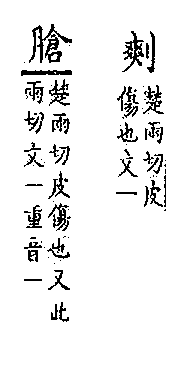 㓽
楚兩切皮
傷也文一
䑋
楚兩切皮傷也又此
兩切文一重音一